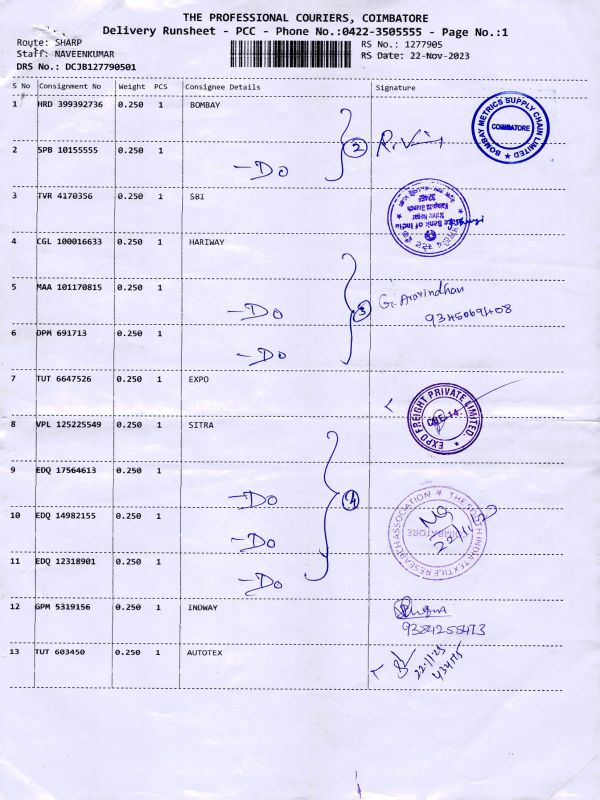 THE PROFESSIONAL COURIERS, COIMBATORE
Delivery Runsheet - PCC - Phone No.:0422-3505555 - Page No.:1
Route: SHARP
Staff: NAVEENKUMAR
DRS No.: DCJB127790501
RS No.: 1277905
RS Date: 22-Nov-2023
S No Consignment No Weight PCS Consignee Details Signature
1 HRD 399392736 0.250 1 BOMBAY
BOMBAY METRICS SUPPLY CHAIN LIMITED
COIMBATORE
2 SPB 10155555 0.250 1 -Do
2
3 TVR 4170356 0.250 1 SBI
State Bank of India
4 CGL 100016633 0.250 1 HARIWAY
5 MAA 101170815 0.250 1 -Do
3
G. Aravindhan
6 DPM 691713 0.250 1 -Do
7 TUT 6647526 0.250 1 EXPO
EXPO FREIGHT PRIVATE LIMITED
8 VPL 125225549 0.250 1 SITRA
9 EDQ 17564613 0.250 1 -Do
4
THE SOUTH INDIA TEXTILE RESEARCH ASSOCIATION
COIMBATORE
10 EDQ 14982155 0.250 1 -Do
11 EDQ 12318901 0.250 1 -Do
12 GPM 5319156 0.250 1 INDWAY
9384255473
13 TUT 603450 0.250 1 AUTOTEX
22.11.23